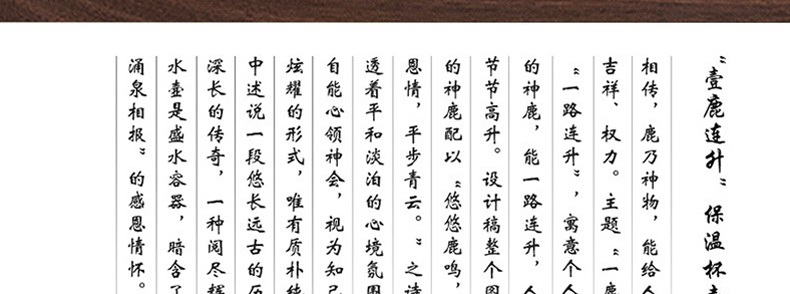 “壹鹿连升”保温杯
相传，鹿乃神物，能给人
吉祥、权力。主题“一鹿
“一路连升”，寓意个人
的神鹿，能一路连升，
节节高升。设计稿整个图
的神鹿配以“悠悠鹿鸣，
恩情，平步青云。”之诗
透着平和淡泊的心境氛围
自能心领神会，视为知己
炫耀的形式，唯有质朴纯
中述说一段悠长远古的历
深长的传奇，一种阅尽辉
水壶是盛水容器，暗含了
涌泉相报”的感恩情怀。